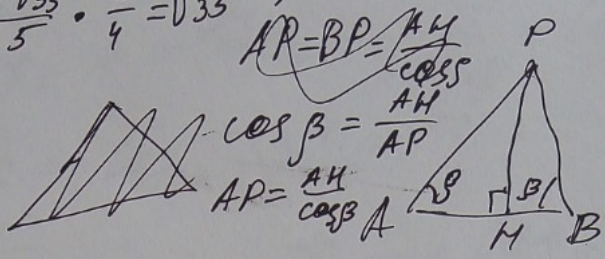 √33/5 · /4 = √33
AP = BP = AH/cosβ
cos β = AH/AP
AP = AH/cosβ
P
β β
A H B